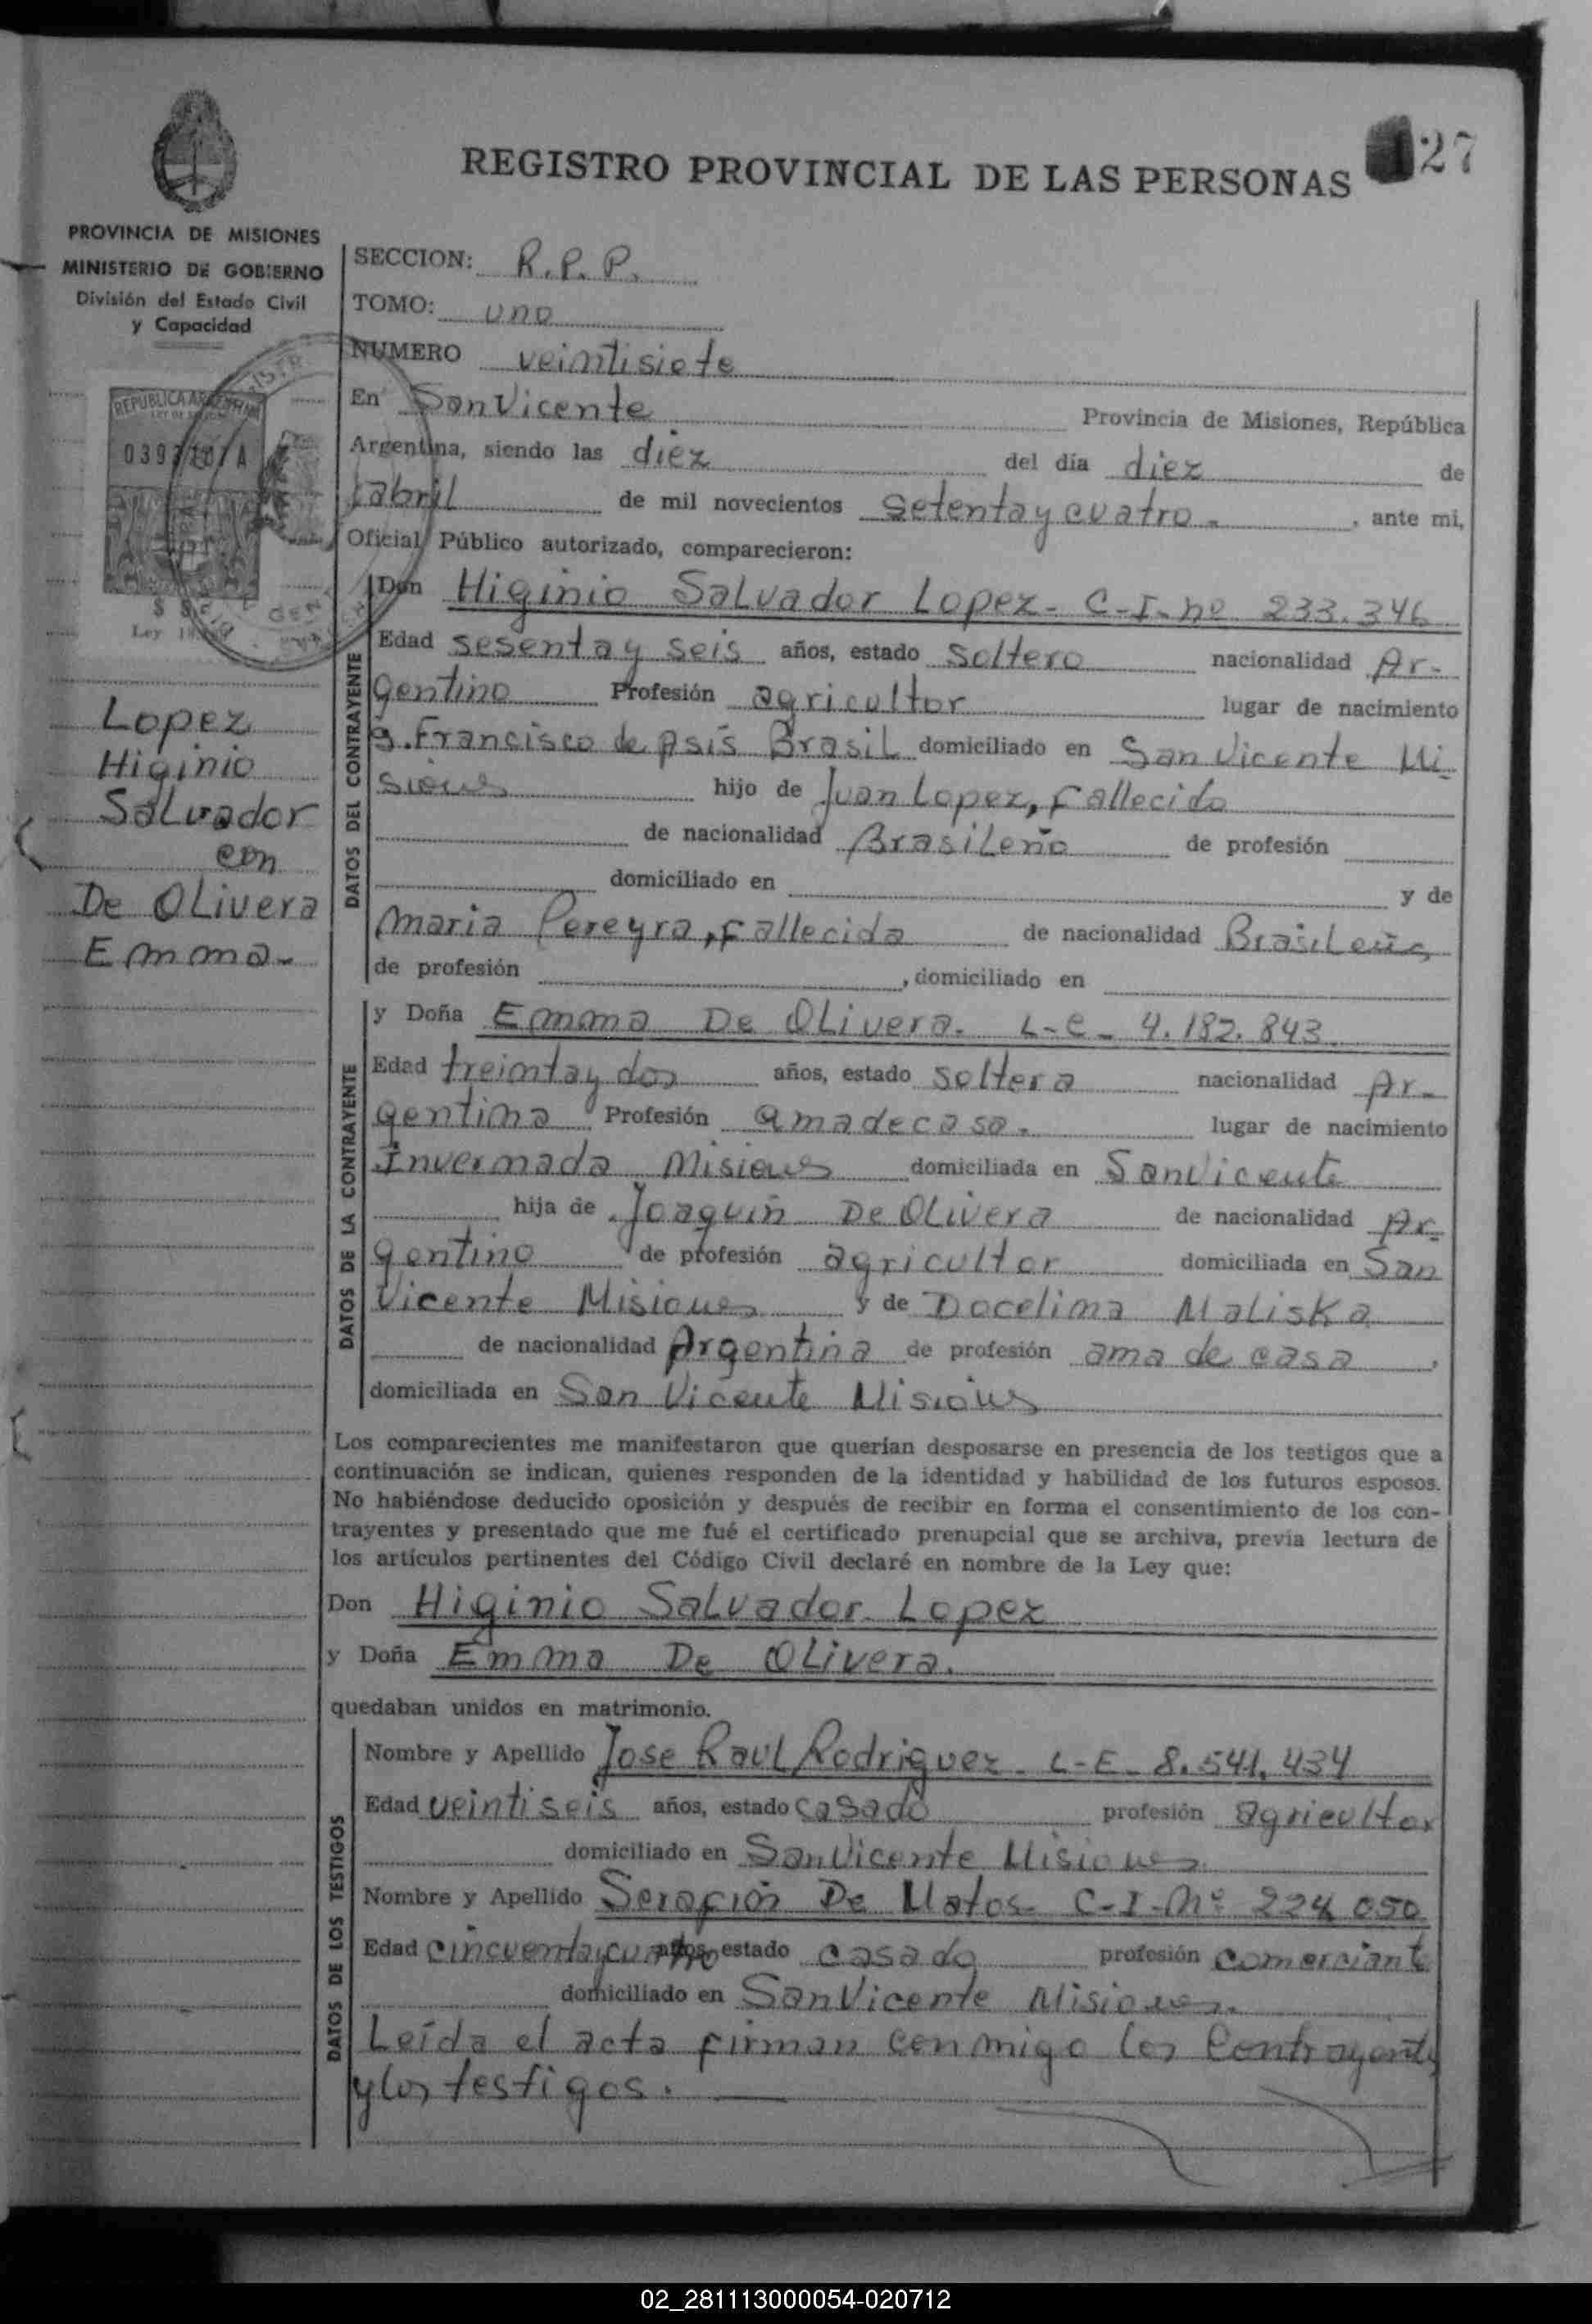 REGISTRO PROVINCIAL DE LAS PERSONAS
27
PROVINCIA DE MISIONES
MINISTERIO DE GOBIERNO
División del Estado Civil
y Capacidad
REPUBLICA
Ley
Lopez
Higinio
Salvador
con
De Olivera
Emma-
SECCION: R.P.P.
TOMO: uno
NUMERO veintisiete
En San Vicente Provincia de Misiones, República
Argentina, siendo las diez del día diez de
abril de mil novecientos setenta y cuatro. , ante mi,
Oficial Público autorizado, comparecieron:
DATOS DEL CONTRAYENTE
Don Higinio Salvador Lopez- C-I-nº 233.346
Edad sesenta y seis años, estado soltero nacionalidad Ar-
gentino Profesión agricultor lugar de nacimiento
S. Francisco de Asis Brasil domiciliado en San Vicente Mi-
siones hijo de Juan Lopez, Fallecido
de nacionalidad Brasileño de profesión
domiciliado en y de
Maria Pereyra, Fallecida de nacionalidad Brasileña
de profesión , domiciliado en
DATOS DE LA CONTRAYENTE
y Doña Emma De Olivera. L-C- 4.182.843
Edad treinta y dos años, estado soltera nacionalidad Ar-
gentina Profesión ama de casa. lugar de nacimiento
Invernada Misiones domiciliada en San Vicente
hija de Joaquin De Olivera de nacionalidad Ar-
gentino de profesión agricultor domiciliada en San
Vicente Misiones y de Docelima Maliska
de nacionalidad Argentina de profesión ama de casa ,
domiciliada en San Vicente Misiones
Los comparecientes me manifestaron que querían desposarse en presencia de los testigos que a
continuación se indican, quienes responden de la identidad y habilidad de los futuros esposos.
No habiéndose deducido oposición y después de recibir en forma el consentimiento de los con-
trayentes y presentado que me fué el certificado prenupcial que se archiva, previa lectura de
los artículos pertinentes del Código Civil declaré en nombre de la Ley que:
Don Higinio Salvador Lopez
y Doña Emma De Olivera.
quedaban unidos en matrimonio.
DATOS DE LOS TESTIGOS
Nombre y Apellido Jose Raul Rodriguez- L-E- 8.541.434
Edad veintiseis años, estado casado profesión agricultor
domiciliado en San Vicente Misiones
Nombre y Apellido Serafin De Matos- C-I-Nº 224.050
Edad cincuenta y cuatro años, estado casado profesión comerciante
domiciliado en San Vicente Misiones.
Leída el acta firman conmigo los Contrayentes
y los testigos.
02_281113000054-020712